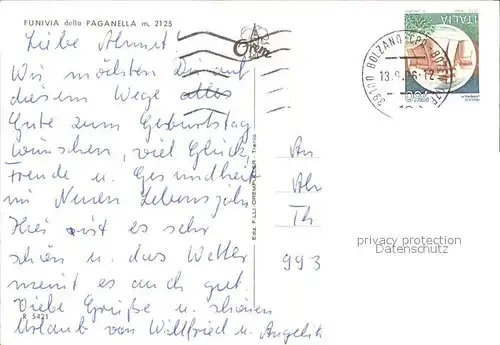 FUNIVIA della PAGANELLA m. 2125
Liebe Ahmet!
Wir möchten Dir auf
diesem Wege alles
Gute zum Geburtstag
wünschen, viel Glück,
Freude u. Gesundheit
im Neuen Lebensjahr
Hier ist es sehr
schön u. das Wetter
meint es auch gut.
Viele Grüße u. schönen
Urlaub von Willfried u. Angelik
R 5421
Ediz. F.LLI CHEMPLANTER - Trento
ITALIA
39100 BOLZANO
13.9.86-12
An
Ah
Th
993
privacy protection
Datenschutz